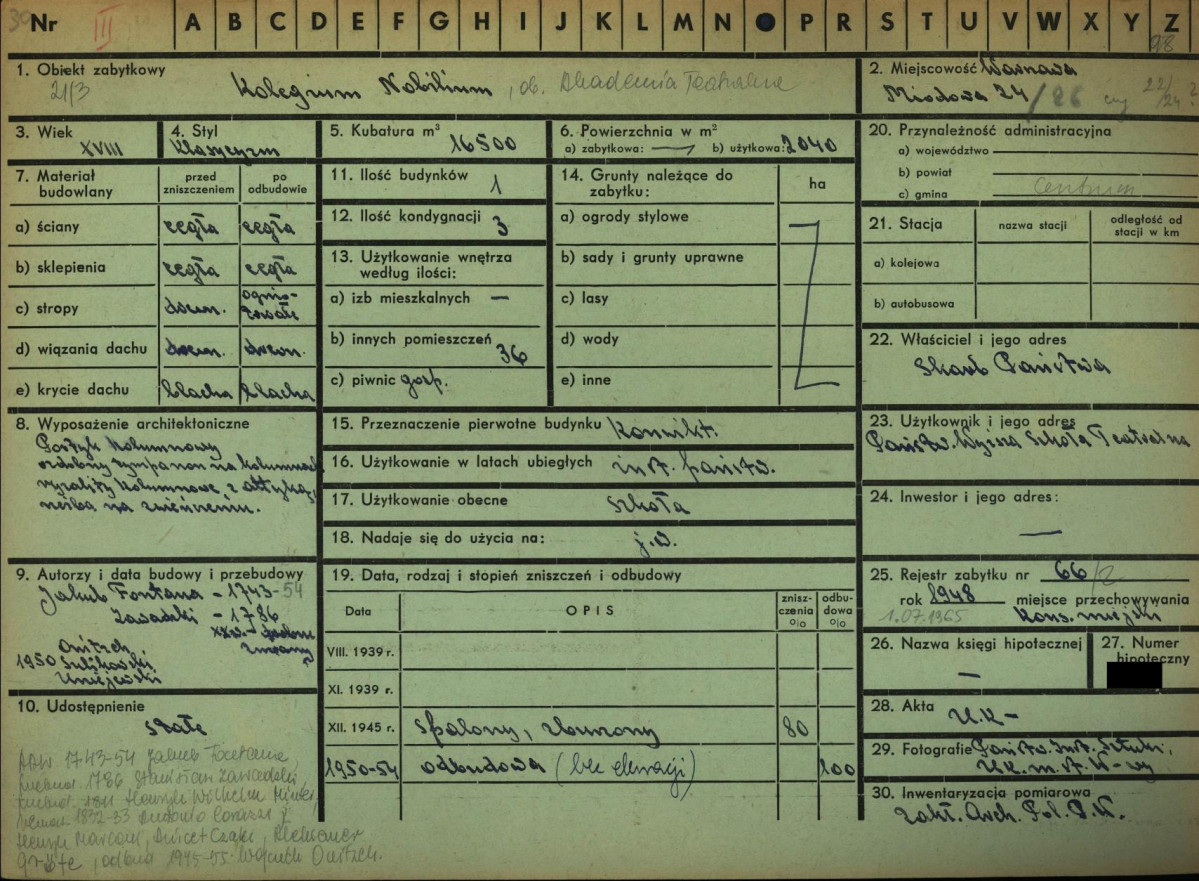 30 Nr III A B C D E F G H I J K L M N O P R S T U V W X Y Z
98
1. Obiekt zabytkowy
21/3
Kolegium Nobilium, ob. Akademia Teatralna
2. Miejscowość Warszawa
Miodowa 24/26 22/24
3. Wiek
XVIII
4. Styl
klasycyzm
5. Kubatura m³
16500
6. Powierzchnia w m²
a) zabytkowa: — b) użytkowa: 2040
20. Przynależność administracyjna
a) województwo
b) powiat
c) gmina Centrum
7. Materiał budowlany
przed zniszczeniem
po odbudowie
a) ściany cegła cegła
b) sklepienia cegła cegła
c) stropy drewn. ognio-trwałe
d) wiązania dachu drewn. drewn.
e) krycie dachu blacha blacha
11. Ilość budynków 1
12. Ilość kondygnacji 3
13. Użytkowanie wnętrza według ilości:
a) izb mieszkalnych —
b) innych pomieszczeń 36
c) piwnic gosp.
14. Grunty należące do zabytku:
ha
a) ogrody stylowe
b) sady i grunty uprawne
c) lasy
d) wody
e) inne
21. Stacja
nazwa stacji
odległość od stacji w km
a) kolejowa
b) autobusowa
22. Właściciel i jego adres
Skarb Państwa
8. Wyposażenie architektoniczne
Portyk kolumnowy
ozdobny tympanon na kolumnach
ryzality kolumnowe, z attyką,
rzeźba na zwieńczeniu.
15. Przeznaczenie pierwotne budynku konwikt.
16. Użytkowanie w latach ubiegłych inst. państw.
17. Użytkowanie obecne szkoła
18. Nadaje się do użycia na: j.w.
23. Użytkownik i jego adres
Państw. Wyższa Szkoła Teatralna
24. Inwestor i jego adres:
—
9. Autorzy i data budowy i przebudowy
Jakub Fontana – 1743-54
Zawadzki – 1786
Onitzch
1950 Sulikowski
Uniejewski
19. Data, rodzaj i stopień zniszczeń i odbudowy
Data
OPIS
znisz-czenia %
odbu-dowa %
VIII. 1939 r.
XI. 1939 r.
XII. 1945 r. spalony, zburzony 80
1950-54 odbudowa (bez elewacji) 100
25. Rejestr zabytku nr 66/2
rok 1948 miejsce przechowywania
1.07.1965 Kons. miejski
26. Nazwa księgi hipotecznej
—
27. Numer hipoteczny
10. Udostępnienie
stałe
28. Akta U.K –
29. Fotografie Państw. Inst. Sztuki,
U.K. m. st. W-wy
30. Inwentaryzacja pomiarowa
Zakł. Arch. Pol. P.W.
1743-54 Jakub Fontana,
przebud. 1786 Stanisław Zawadzki,
przebud. 1811 Henryk Wilhelm Minter,
remont 1832-33 Antonio Corazzi,
Henryk Marconi, Aleksander
Groffe, odbud 1945-55 Wojciech Onitzch.